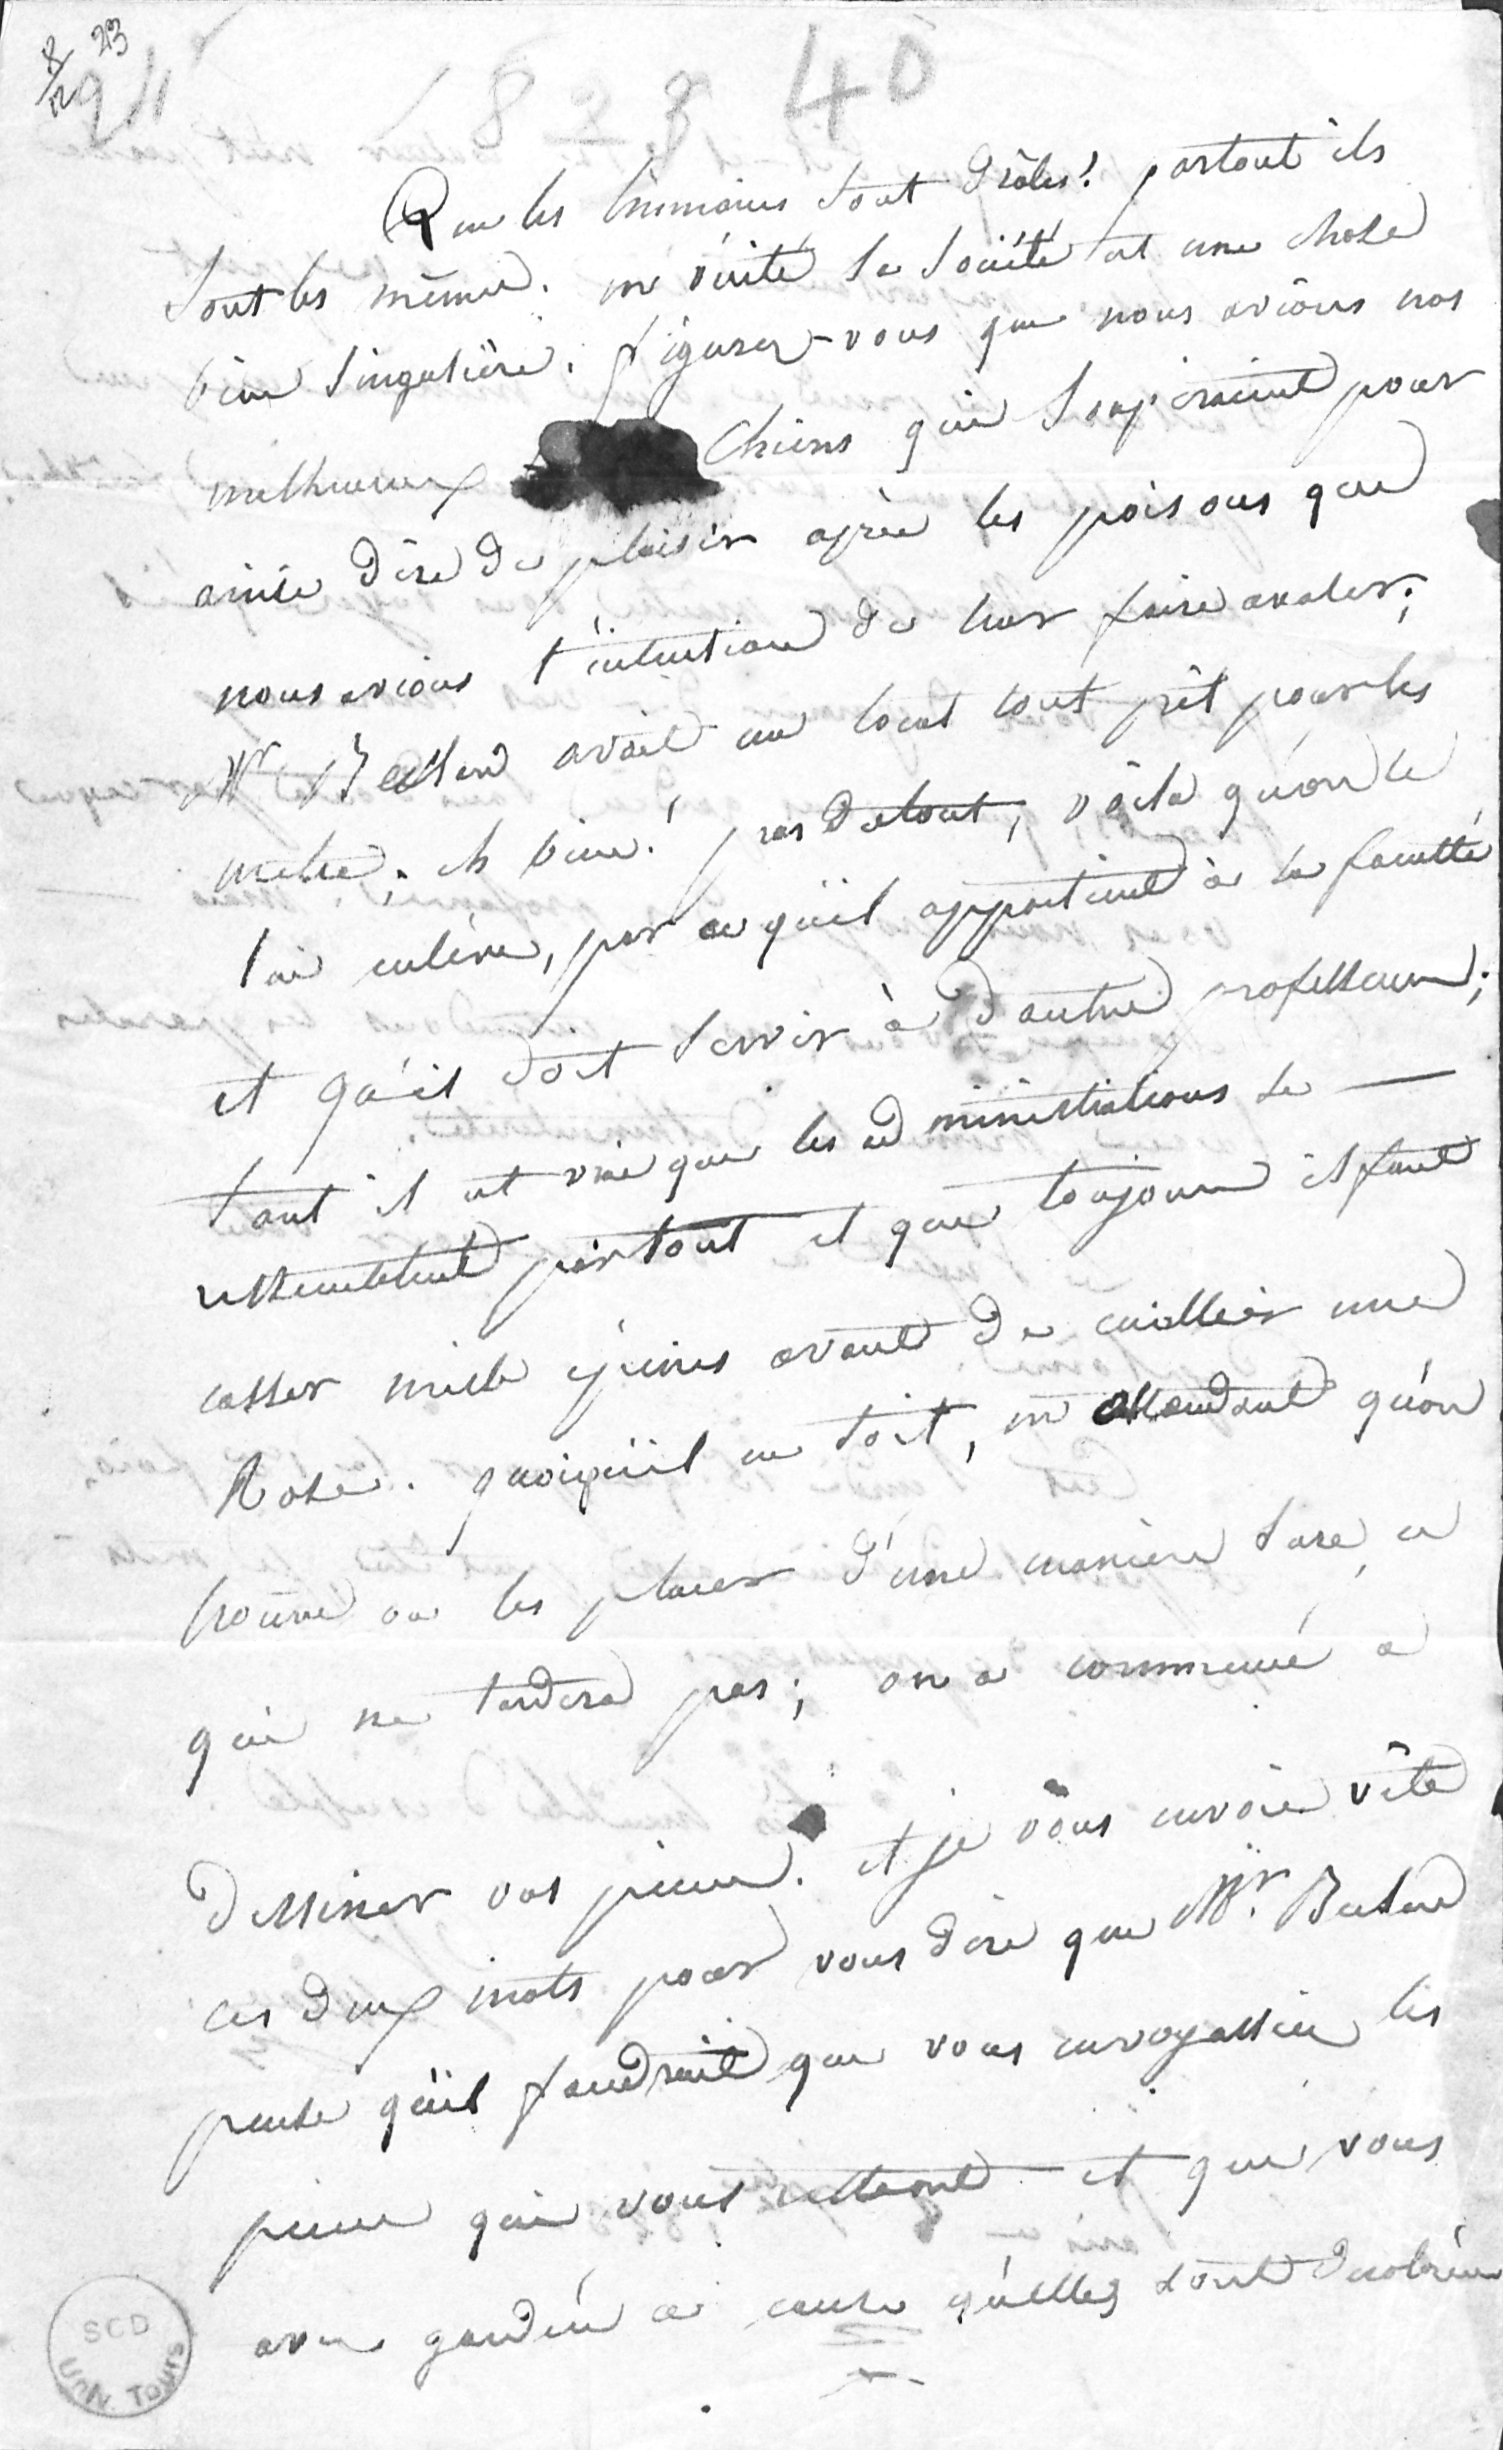 8/12 23
24
1823 40
Que les humains sont drôles! partout ils
sont les mêmes. en vérité la société est une chose
bien singulière. figurez-vous que nous avions nos
malheureux chiens qui soupiraient pour
ainsi dire de plaisir après les poisons que
nous avions l'intention de leur faire avaler;
Mr avait un local tout prêt pour les
mettre; eh bien! pas du tout, voila qu'on le
lui enlève, par ce qu'il appartient à la faculté
et qu'il doit servir à d'autre professeurs;
tant il est vrai que les administrations se
ressemblent partout et que toujours il faut
casser mille épines avant de cueillir une
Rose. quoiqu'il en soit, en attendant qu'on
trouve ou les placer d'une manière sure, ce
qui ne tardera pas; on a commencé a
dessiner vos pieces. et je vous envoie vite
ces deux mots pour vous dire que Mr.
pense qu'il faudrait que vous envoyassiez les
pieces qui vous restent et que vous
avez gardées a cause qu'elles sont
SCD
Univ. Tours